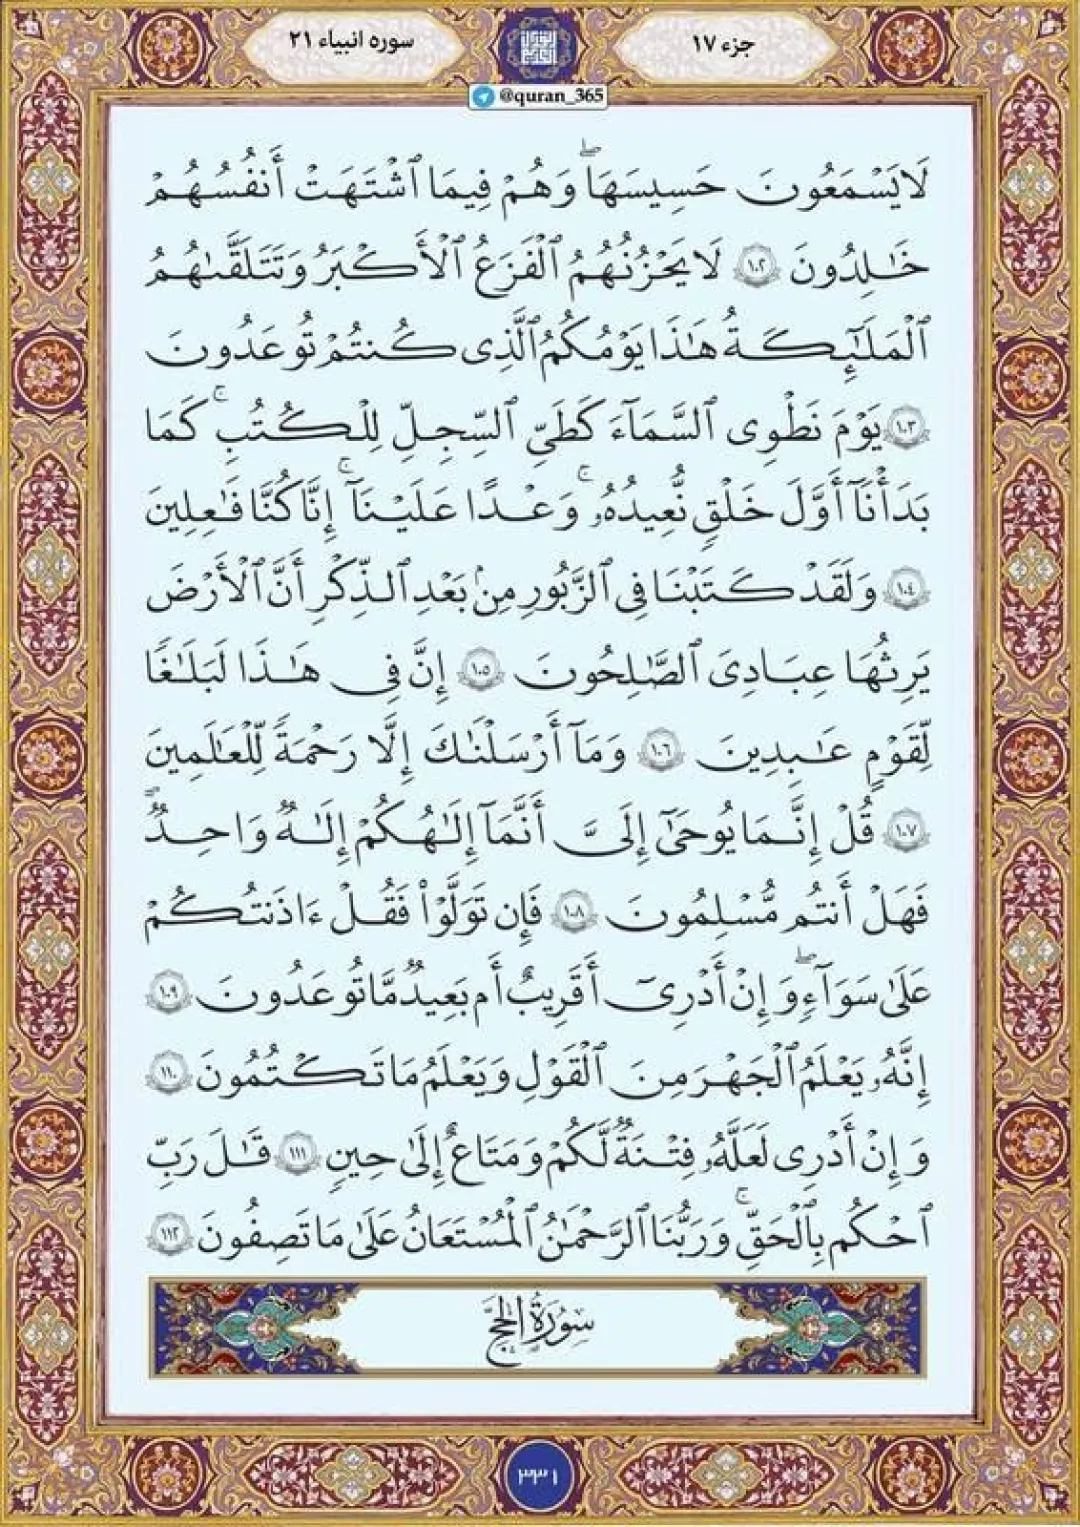 جزء ۱۷
سوره انبیاء ۲۱
@quran_365
لَا يَسْمَعُونَ حَسِيسَهَا ۖ وَهُمْ فِيمَا ٱشْتَهَتْ أَنفُسُهُمْ
خَـٰلِدُونَ ١٠٢ لَا يَحْزُنُهُمُ ٱلْفَزَعُ ٱلْأَكْبَرُ وَتَتَلَقَّىٰهُمُ
ٱلْمَلَـٰٓئِكَةُ هَـٰذَا يَوْمُكُمُ ٱلَّذِى كُنتُمْ تُوعَدُونَ
١٠٣ يَوْمَ نَطْوِى ٱلسَّمَآءَ كَطَىِّ ٱلسِّجِلِّ لِلْكُتُبِ ۚ كَمَا
بَدَأْنَآ أَوَّلَ خَلْقٍ نُّعِيدُهُۥ ۚ وَعْدًا عَلَيْنَآ ۚ إِنَّا كُنَّا فَـٰعِلِينَ
١٠٤ وَلَقَدْ كَتَبْنَا فِى ٱلزَّبُورِ مِنۢ بَعْدِ ٱلذِّكْرِ أَنَّ ٱلْأَرْضَ
يَرِثُهَا عِبَادِىَ ٱلصَّـٰلِحُونَ ١٠٥ إِنَّ فِى هَـٰذَا لَبَلَـٰغًا
لِّقَوْمٍ عَـٰبِدِينَ ١٠٦ وَمَآ أَرْسَلْنَـٰكَ إِلَّا رَحْمَةً لِّلْعَـٰلَمِينَ
١٠٧ قُلْ إِنَّمَا يُوحَىٰٓ إِلَىَّ أَنَّمَآ إِلَـٰهُكُمْ إِلَـٰهٌ وَٰحِدٌ ۖ
فَهَلْ أَنتُم مُّسْلِمُونَ ١٠٨ فَإِن تَوَلَّوْا۟ فَقُلْ ءَاذَنتُكُمْ
عَلَىٰ سَوَآءٍ ۖ وَإِنْ أَدْرِىٓ أَقَرِيبٌ أَم بَعِيدٌ مَّا تُوعَدُونَ ١٠٩
إِنَّهُۥ يَعْلَمُ ٱلْجَهْرَ مِنَ ٱلْقَوْلِ وَيَعْلَمُ مَا تَكْتُمُونَ ١١٠
وَإِنْ أَدْرِى لَعَلَّهُۥ فِتْنَةٌ لَّكُمْ وَمَتَـٰعٌ إِلَىٰ حِينٍ ١١١ قَـٰلَ رَبِّ
ٱحْكُم بِٱلْحَقِّ ۗ وَرَبُّنَا ٱلرَّحْمَـٰنُ ٱلْمُسْتَعَانُ عَلَىٰ مَا تَصِفُونَ ١١٢
سُورَةُ الْحَجِّ
٣٣١